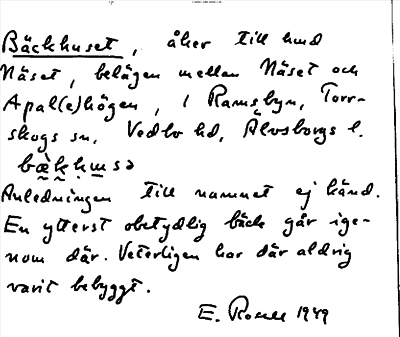 Bäckhuset, åker till hmd
Näset, belägen mellan Näset och
Apal(e)högen, i Ramsbyn, Torr-
skogs sn, Vedbo hd, Älvsborgs l.
Anledningen till namnet ej känd.
En ytterst obetydlig bäck går ige-
nom där. Veterligen har där aldrig
varit bebyggt.
E. 1949